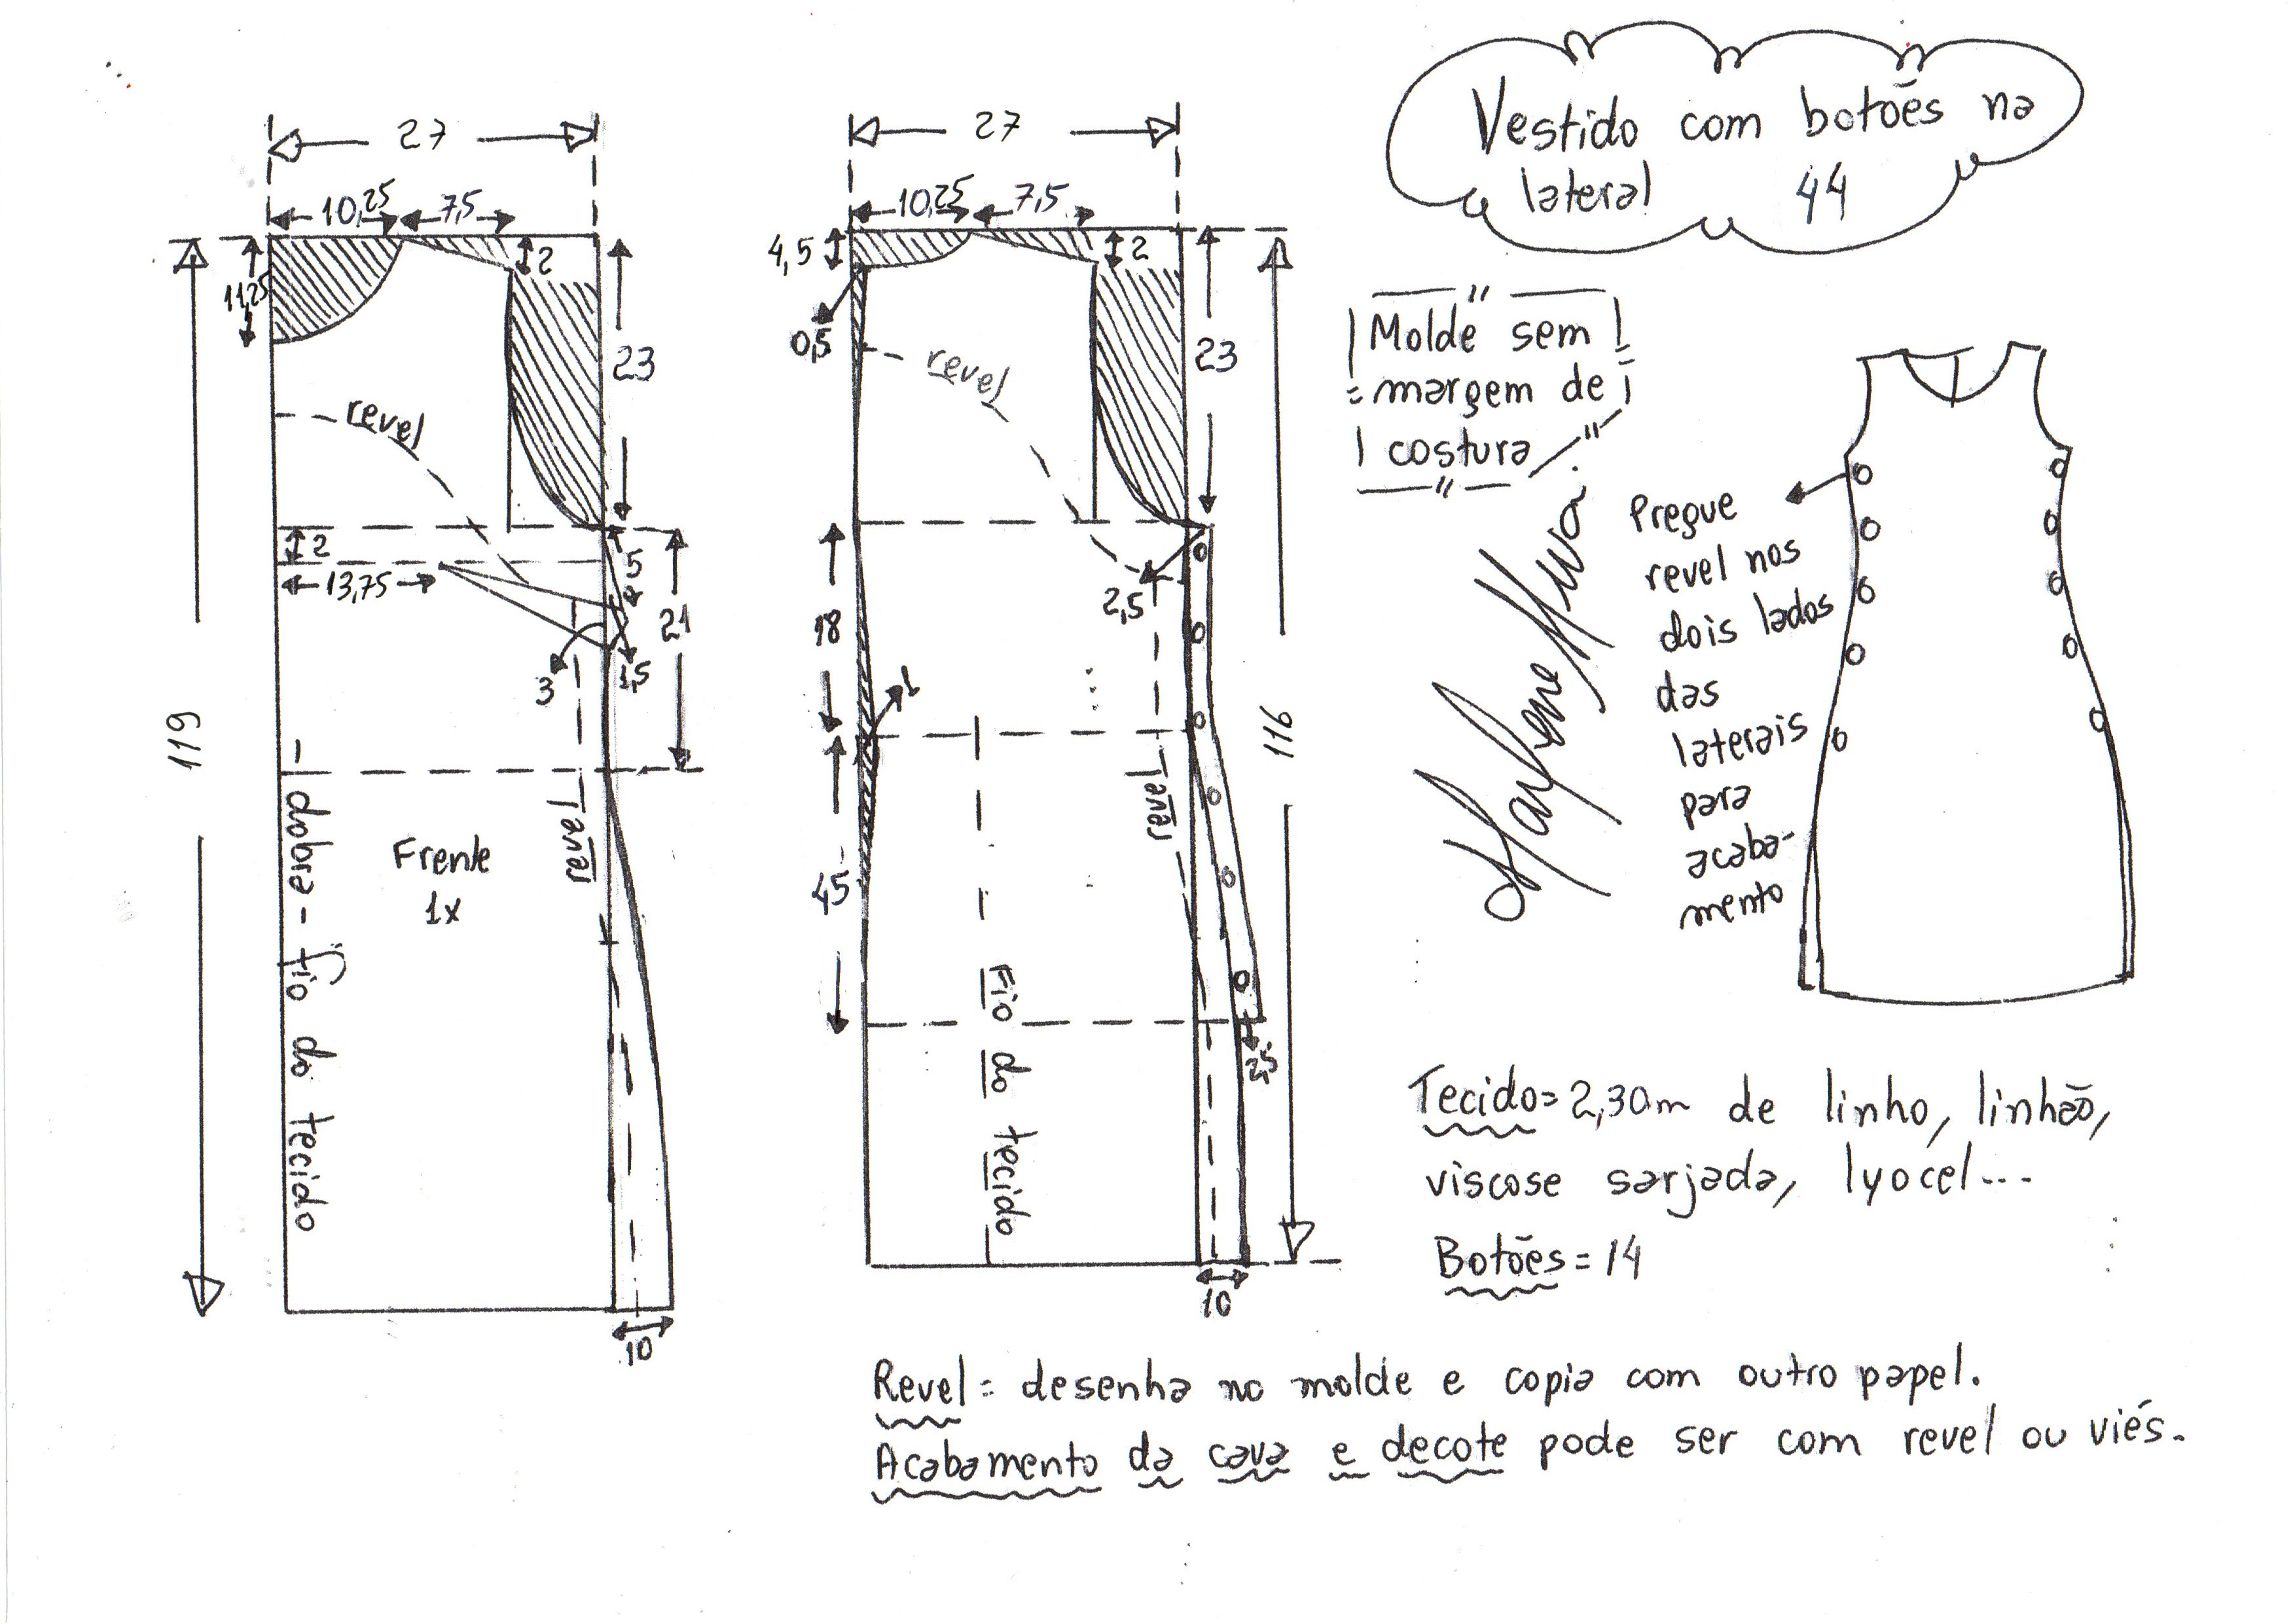 Vestido com botões na
lateral 44
27
10,25 7,5
11,25
2
23
revel
2
13,75
5
3
1,5
21
119
Frente
1x
revel
dobra - fio do tecido
10
27
10,25 7,5
4,5
2
0,5
revel
23
2,5
18
1
45
revel
Fio do tecido
2,5
116
10
Molde sem
margem de
costura
Marlene Mukai
Pregue
revel nos
dois lados
das
laterais
para
acaba-
mento
Tecido= 2,30m de linho, linhão,
viscose sarjada, lyocel...
Botões = 14
Revel = desenha no molde e copia com outro papel.
Acabamento da cava e decote pode ser com revel ou viés.